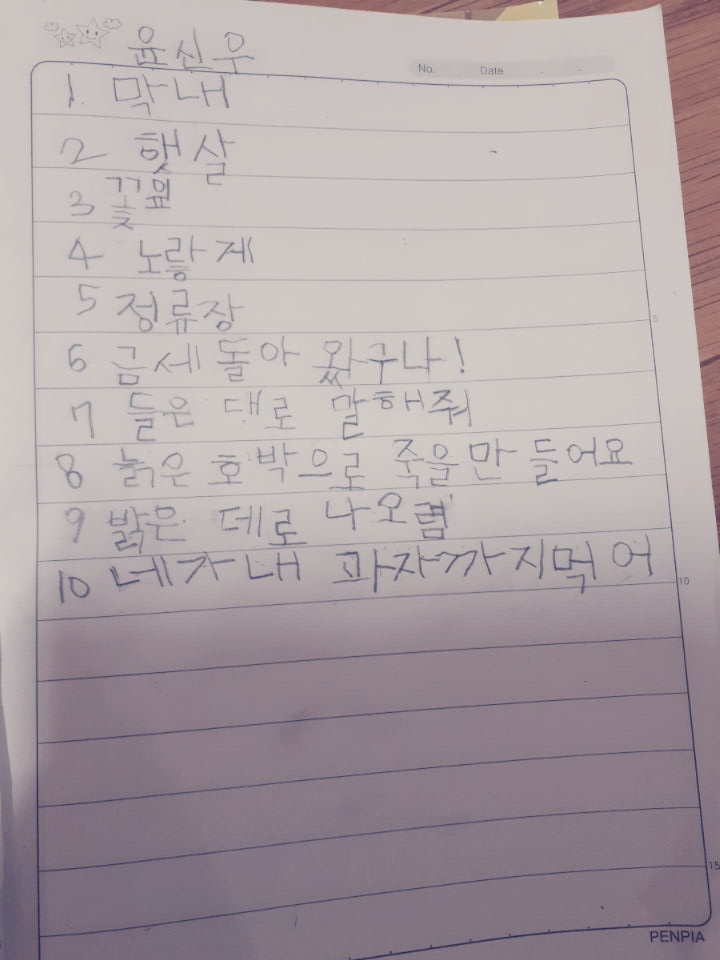 윤신우
No. Date
1. 막내
2 햇살
3 꽃잎
4 노랗게
5 정류장
6 금세 돌아 왔구나!
7 들은 대로 말해줘
8 늙은 호박으로 죽을만 들어요
9 밝은 데로 나오렴
10 네가 내 과자까지먹 어
5
10
15
PENPIA